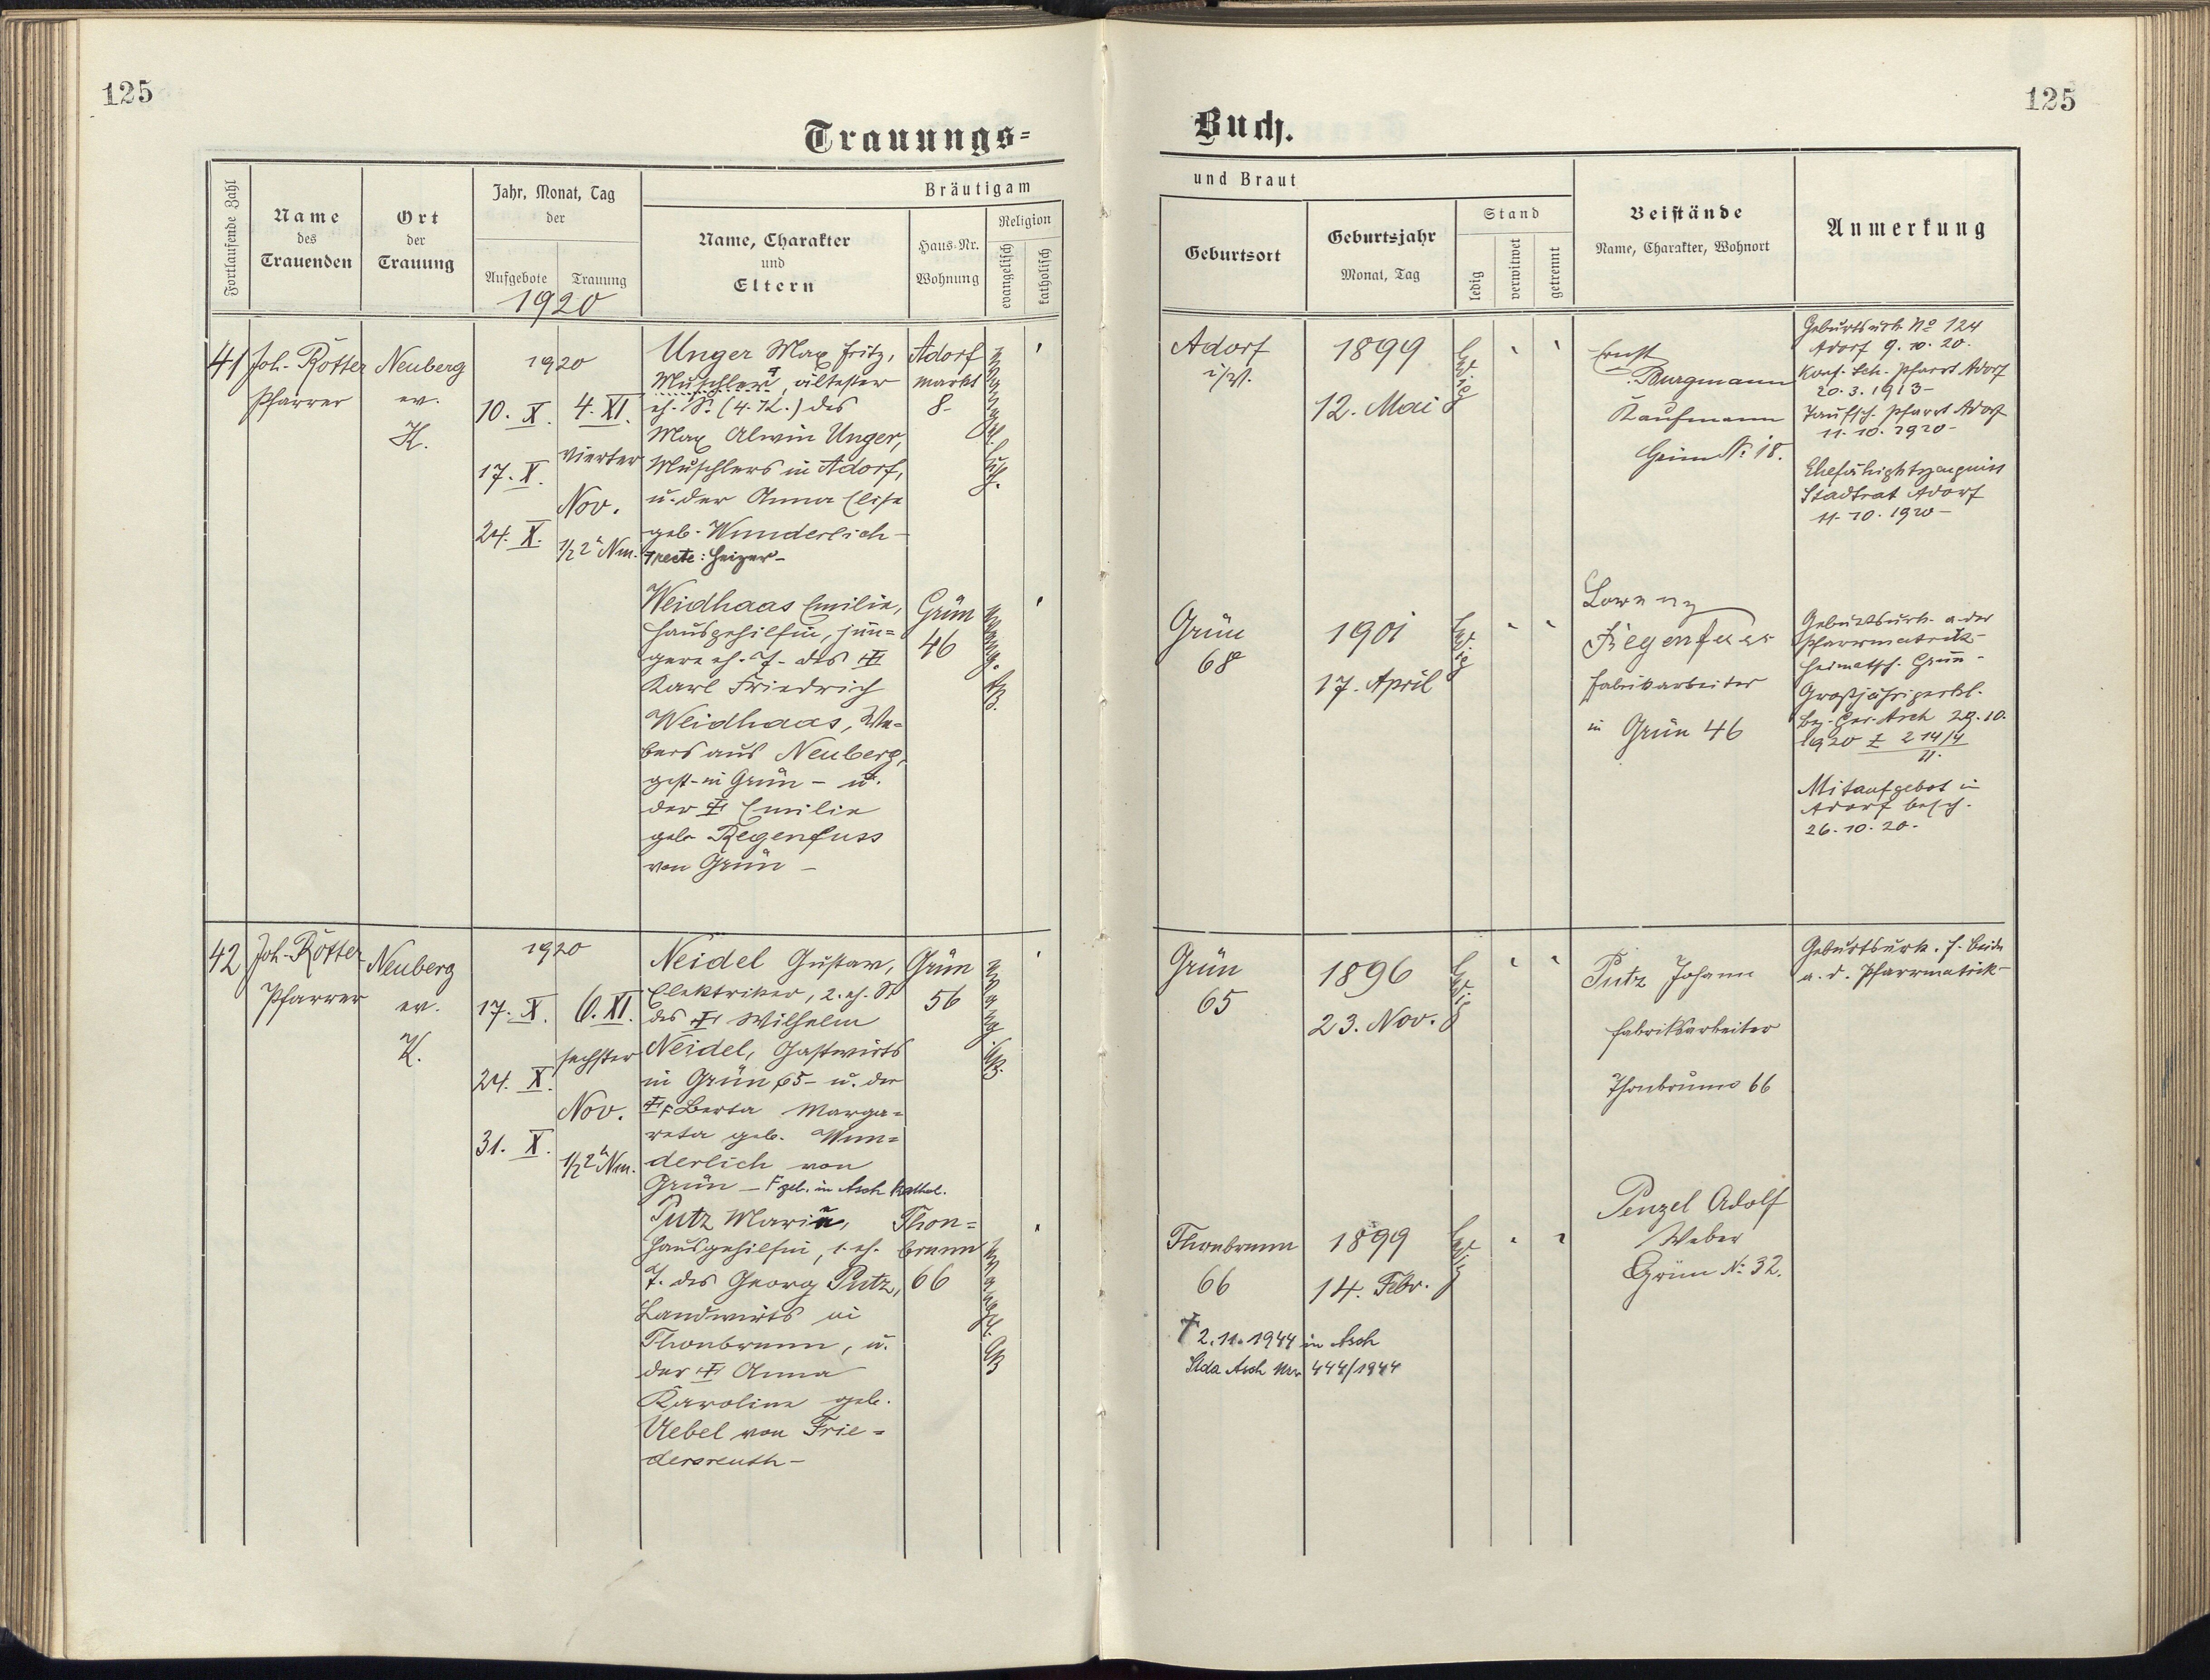 125
125
Trauungs=
Buch.
Fortlaufende Zahl
Name
des
Trauenden
Ort
der
Trauung
Jahr, Monat, Tag
der
Aufgebote
Trauung
1920
Bräutigam
Name, Charakter
und
Eltern
Haus-Nr.
Wohnung
Religion
evangelisch
katholisch
und Braut
Geburtsort
Geburtsjahr
Monat, Tag
Stand
ledig
verwitwet
getrennt
Beistände
Name, Charakter, Wohnort
Anmerkung
41
Joh. Rötter
Pfarrer
Neuberg
ev.
K.
1920
10. X.
17. X.
24. X.
4. XI.
vierter
Nov.
1/2 2 h Nm.
Unger Max Fritz,
Muschler, ältester
eh. S. (4. K.) des
Max Alwin Unger,
Muschlers in Adorf,
u. der Anna Elise
geb. Wunderlich -
recte: Heizer -
Adorf
Markt
8.
evang. luth.
Adorf
i/V.
1899
12. Mai
ledig
Ernst
Burgmann
Kaufmann
Grün Nr. 18.
Geburtsurk. No 124
Adorf 9. 10. 20.
Konf. Sch. Pfarrt Adorf
20. 3. 1913 -
Taufsch. Pfarrt Adorf
11. 10. 1920 -
Ehefähigktszeugniss
Stadtrat Adorf
11. 10. 1920 -
Weidhaas Emilie,
Hausgehilfin, jün=
gere eh. T. des ☩
Karl Friedrich
Weidhaas, We=
bers aus Neuberg,
gest. in Grün - u.
der ☩ Emilie
geb. Regenfuss
von Grün -
Grün
46
evang. AB.
Grün
68
1901
17. April
ledig
Lorenz
Regenfuss
Fabrikarbeiter
in Grün 46
Geburtsurk. a. der
Pfarrmatrik -
Heimatsch. Grün -
Großjährigerkl.
Bez. Ger. Asch 29. 10.
1920 L 214/4
11.
Mitaufgebot in
Adorf besch.
26. 10. 20.
42
Joh. Rötter
Pfarrer
Neuberg
ev.
K.
1920
17. X.
24. X.
31. X.
6. XI.
sechster
Nov.
1/2 2 h Nm.
Neidel Gustav,
Elektriker, 2. eh. S.
des ☩ Wilhelm
Neidel, Gastwirts
in Grün 65 - u. der
☩ F Berta Marga=
reta geb. Wun=
derlich von
Grün - F geb. in Asch kathol.
Grün
56
evang. AB.
Grün
65
1896
23. Nov.
ledig
Putz Johann
Fabriksarbeiter
Thonbrunn 66
Geburtsurk. f. beide
a. d. Pfarrmatrik -
Putz Marie,
Hausgehilfin, 1. eh.
T. des Georg Putz,
Landwirts in
Thonbrunn, u.
der ☩ Anna
Karoline geb.
Uebel von Frie=
dersreuth -
Thon=
brunn
66
evangel. AB
Thonbrunn
66
1899
14. Febr.
ledig
Penzel Adolf
Weber
Grün Nr. 32.
† 2. 11. 1944 in Asch
Stda Asch Nr. 444/1944